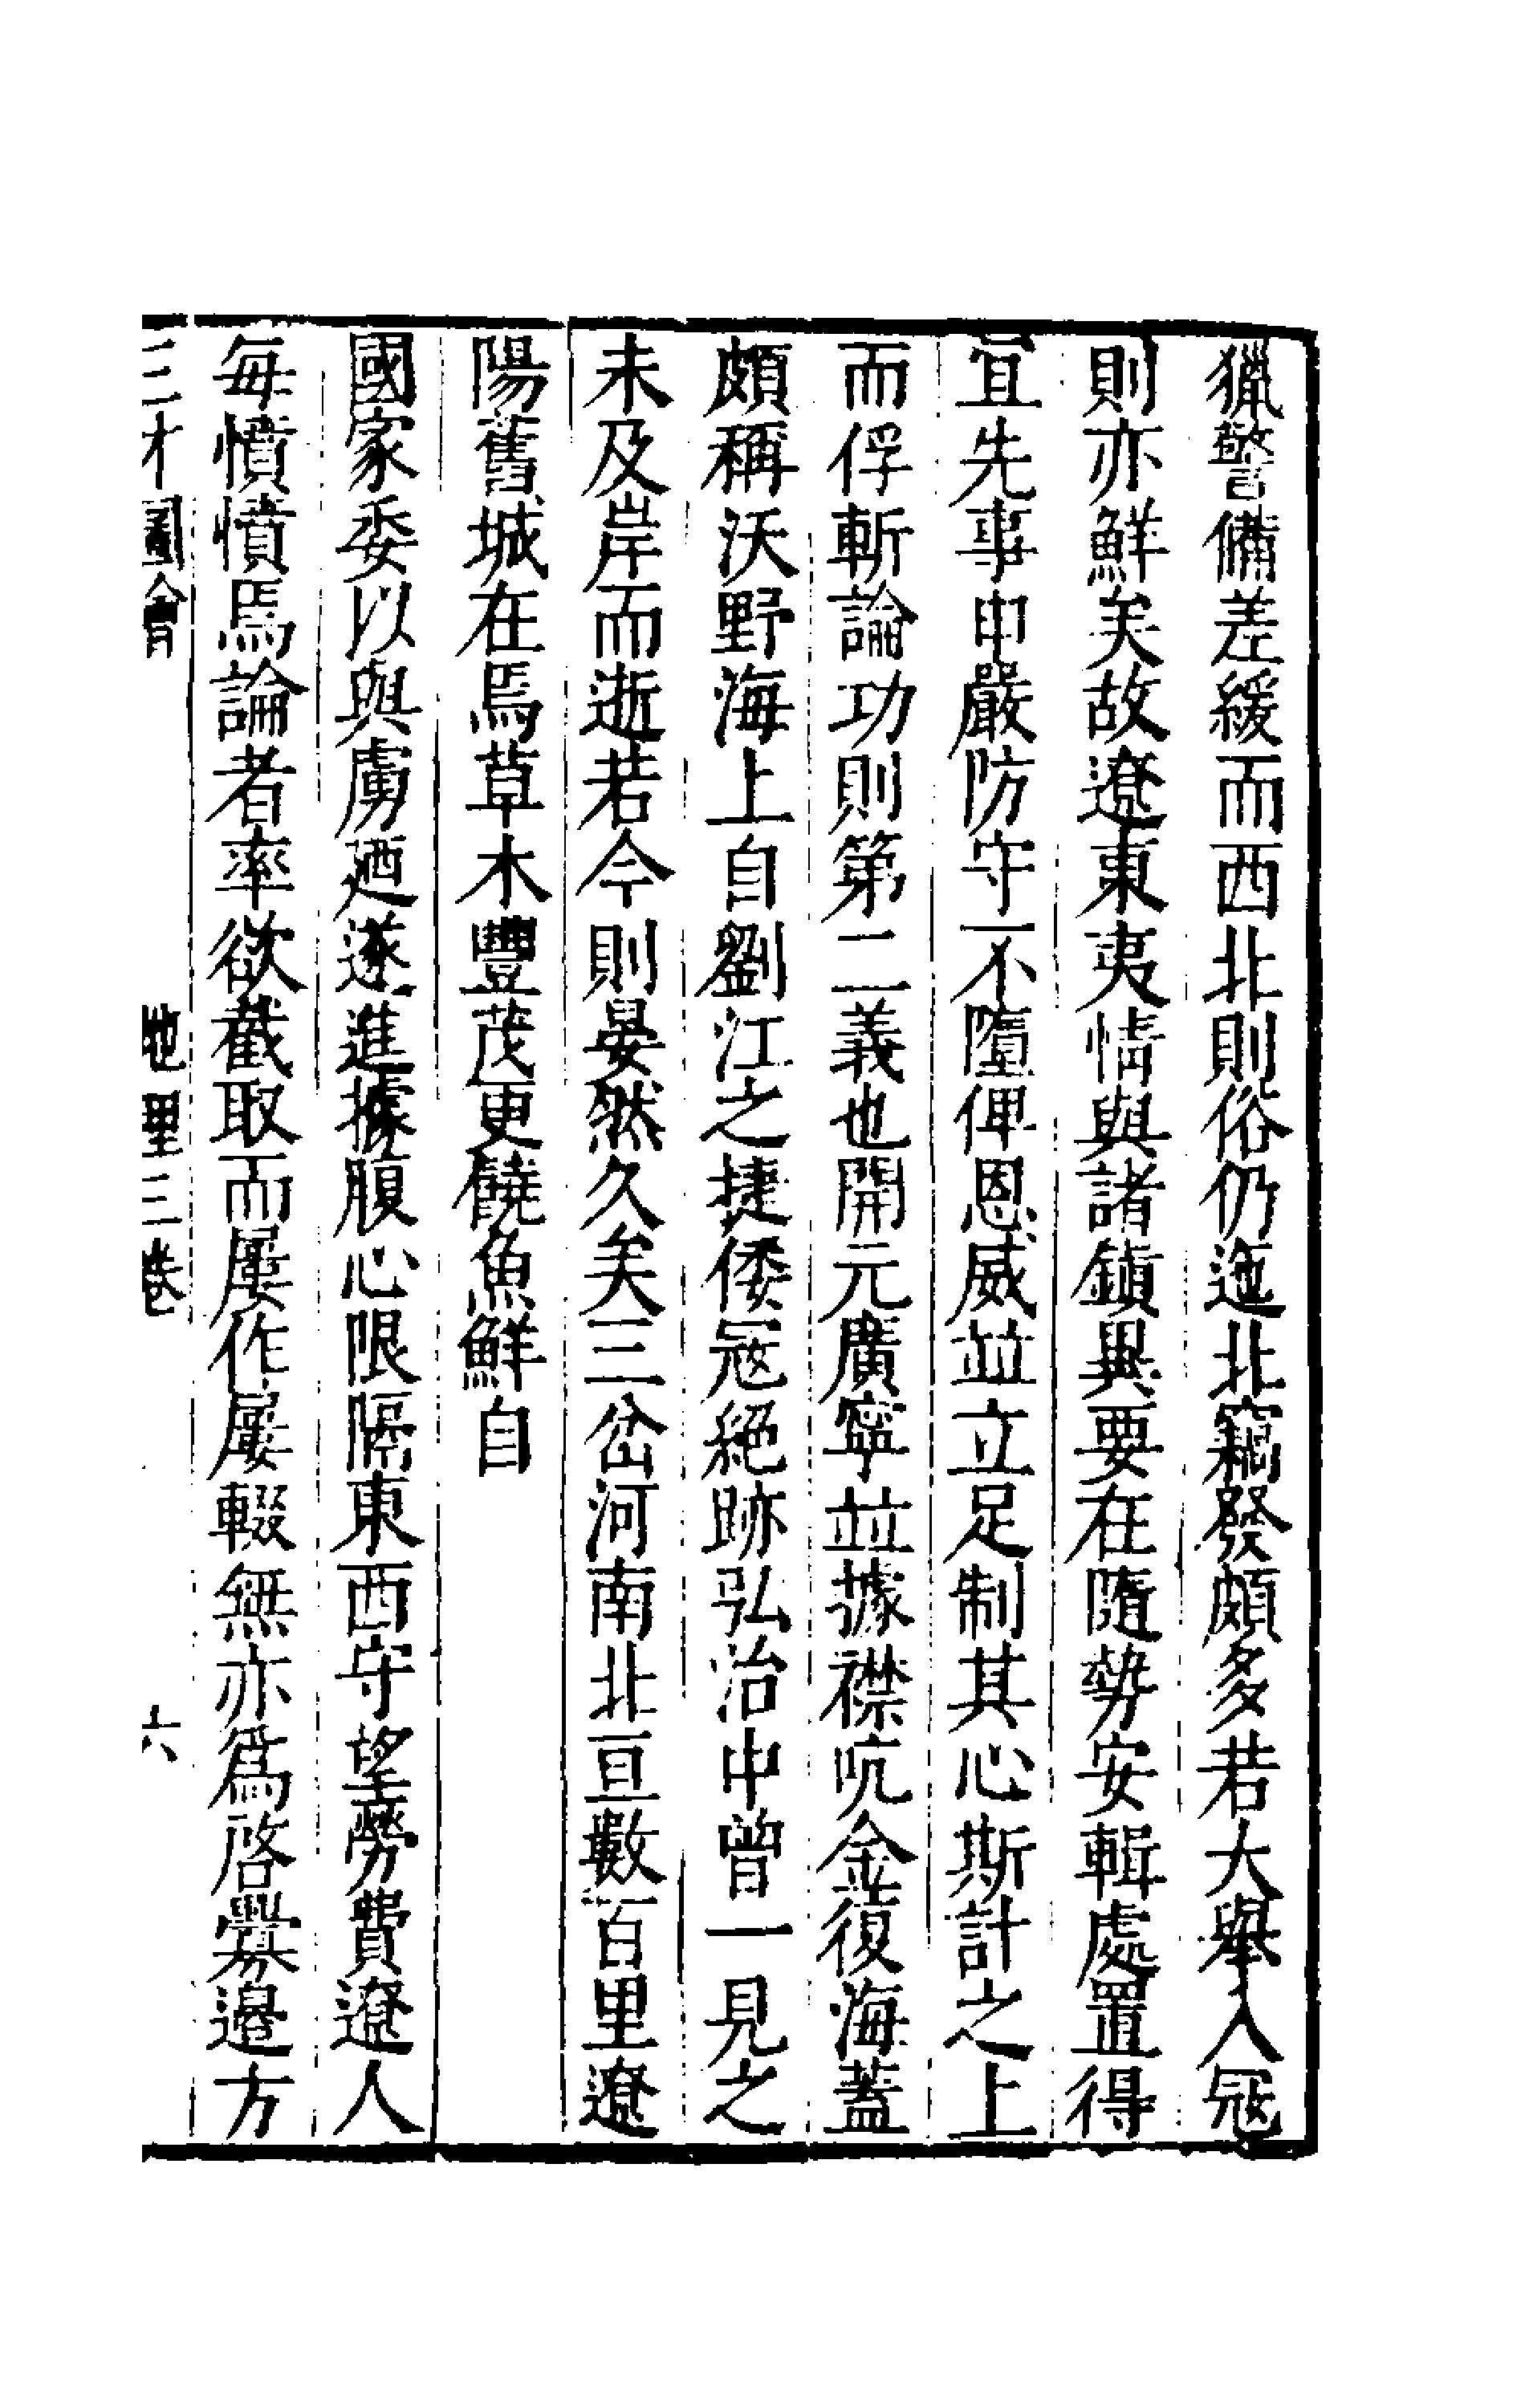 獵警備差緩而西北則俗仍迤北竊發頗多若大舉入冦
則亦鮮矣故遼東夷情與諸鎮異要在隨勢安輯處置得
宜先事申嚴防守不隳俾恩威並立足制其心斯計之上
而俘斬論功則第二義也開元廣寧並據襟吭金復海蓋
頗稱沃野海上自劉江之捷倭冦絕跡弘治中曾一見之
未及岸而逝若今則晏然久矣三岔河南北亘數百里遼
陽舊城在焉草木豐茂更饒魚鮮自
國家委以與虜廼遂進據腹心限隔東西守望勞費遼人
每憤憤焉論者率欲截取而屢作屢輟無亦爲啓釁邉方
三才圖會 地理三卷 六